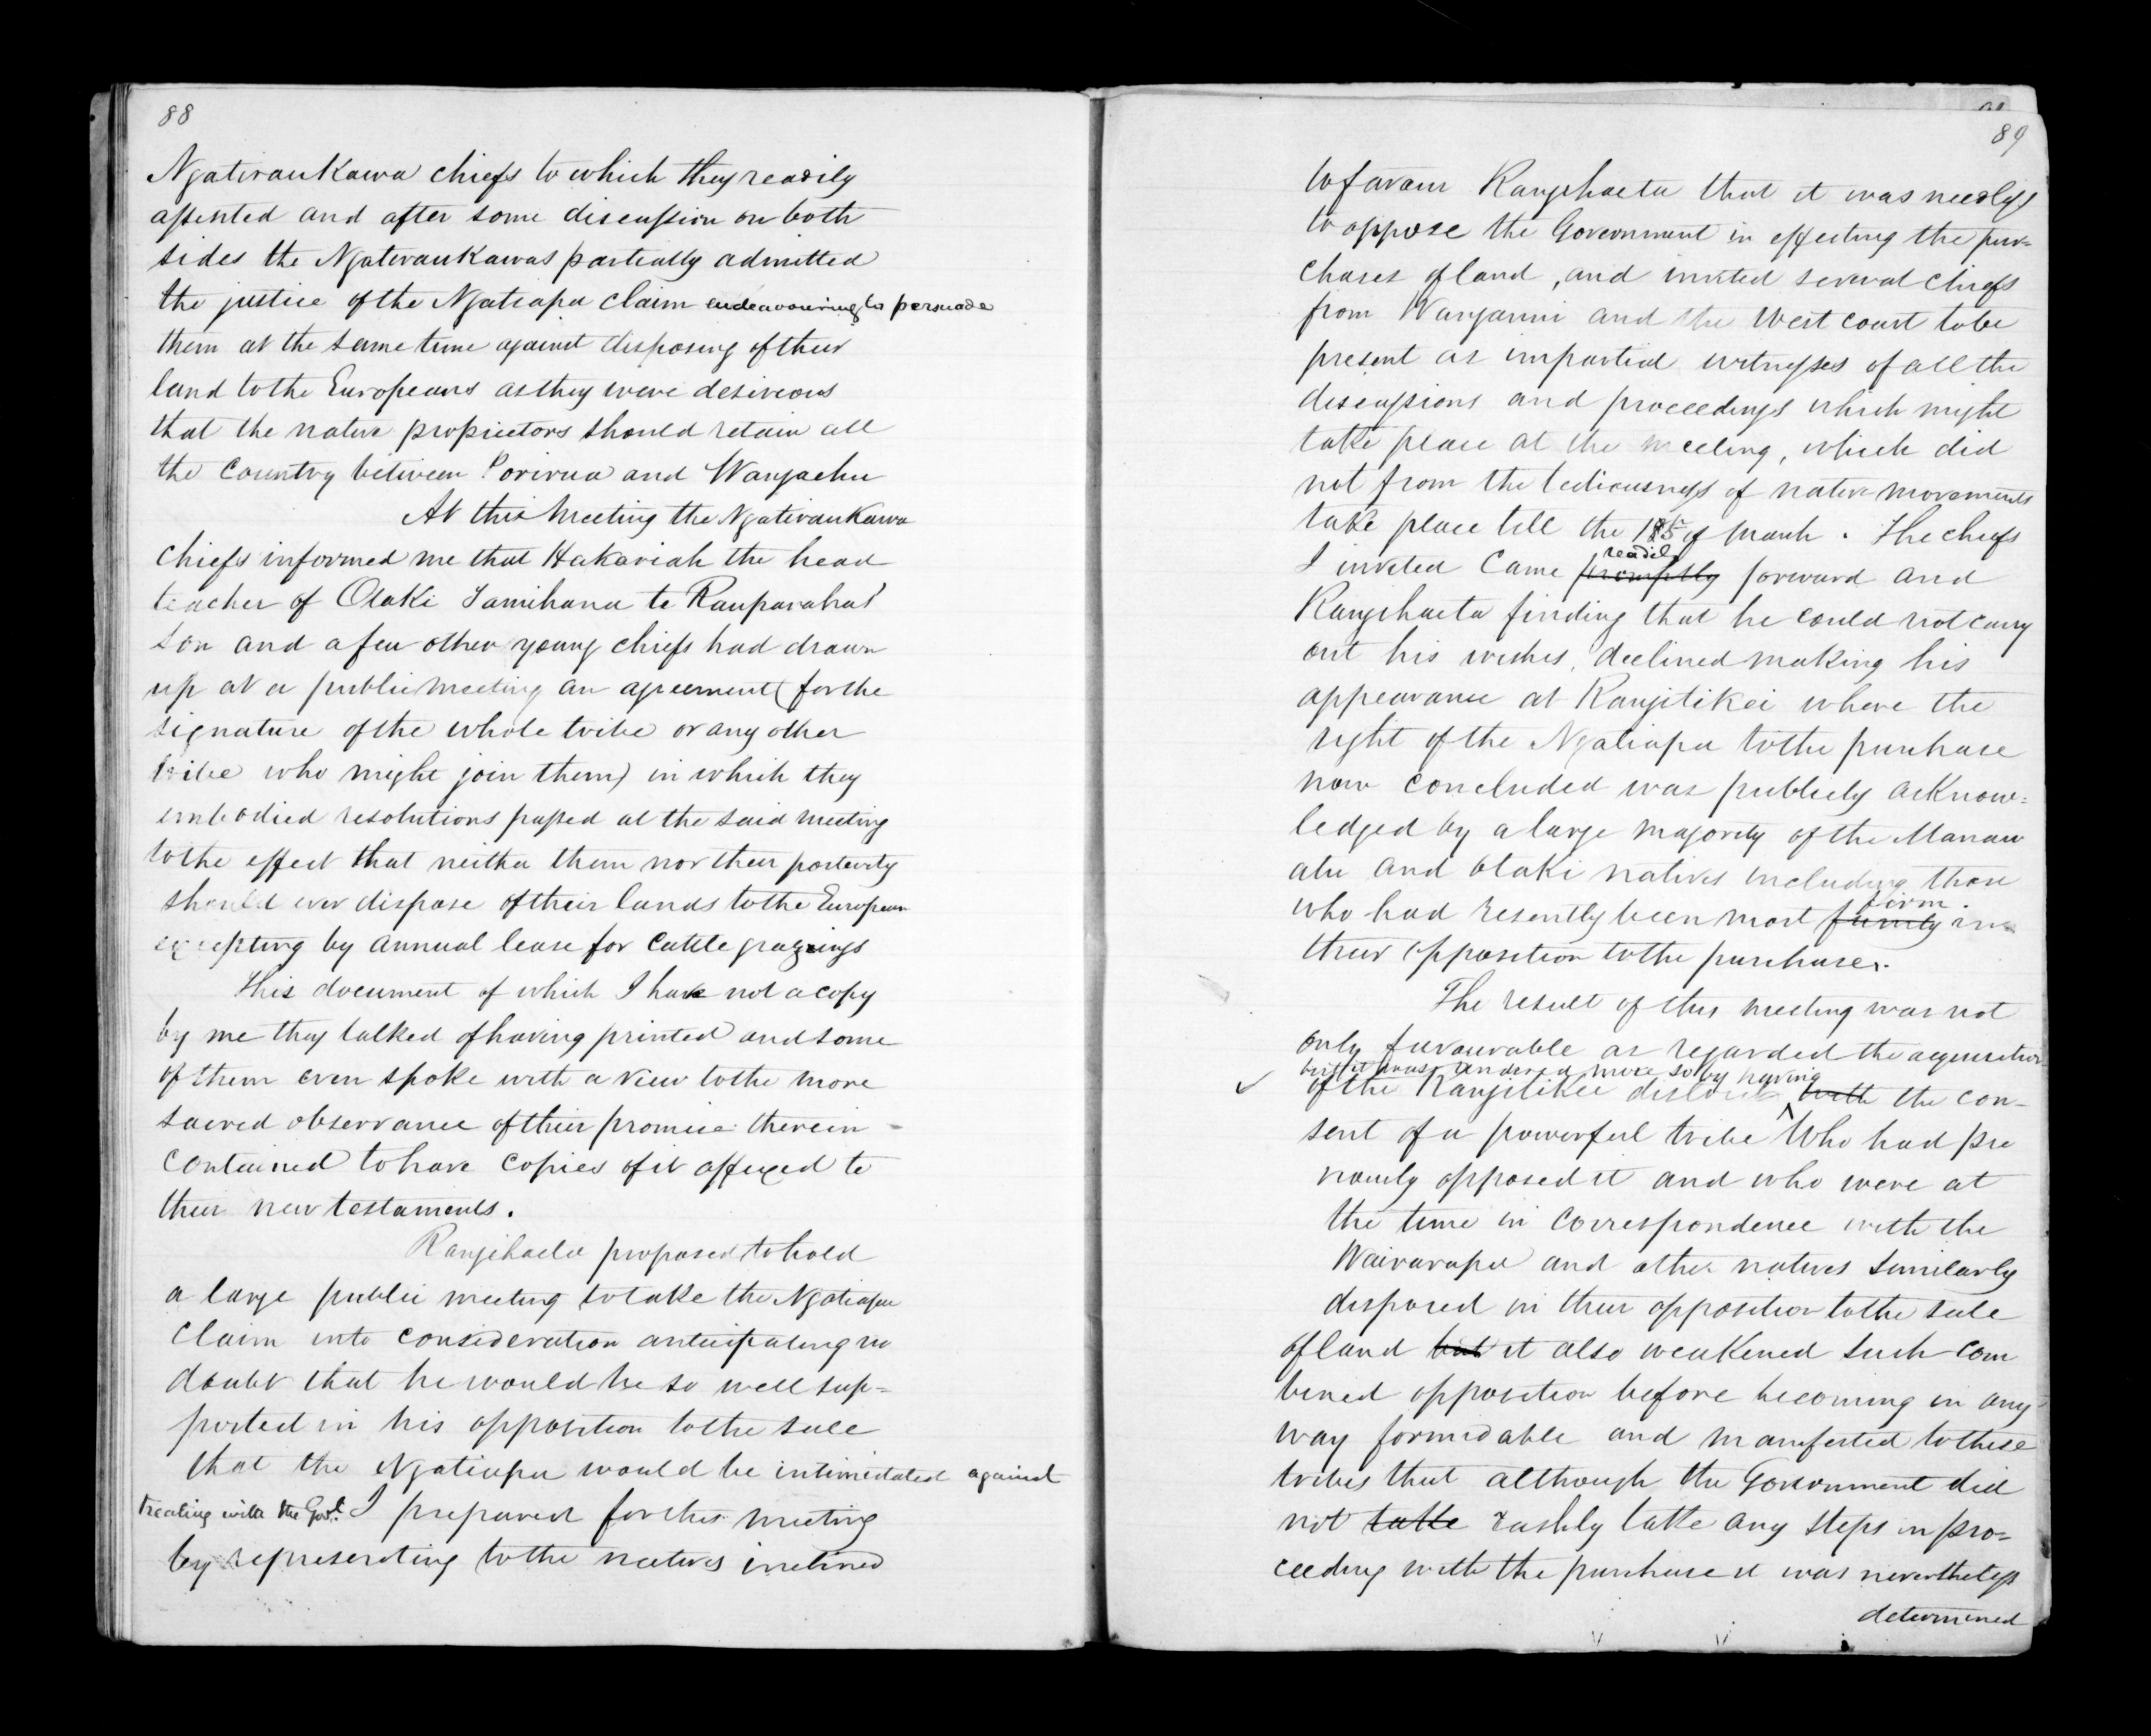 88
Ngatiraukawa chiefs to which they readily
assented and after some discussion on both
sides the Ngatiraukawas partially admitted
the justice of the Ngatiapa claim endeavouring to persuade
them at the same time against disposing of their
land to the Europeans as they were desireous
that the native proprietors should retain all
the country between Porirua and Wangaehu
At this meeting the Ngatiraukawa
chiefs informed me that Hakariah the head
teacher of Otaki Tamihana te Rauparahas
son and a few other young chiefs had drawn
up at a public meeting an agreement (for the
signature of the whole tribe or any other
tribe who might join them) in which they
embodied resolutions passed at the said meeting
to the effect that neither them nor their posterity
should ever dispose of their lands to the European
excepting by annual lease for cattle grazings
This document of which I have not a copy
by me they talked of having printed and some
of them even spoke with a view to the more
sacred observance of their promise therein
contained to have copies of it affixed to
their new testaments.
Rangihaeta proposed to hold
a large public meeting to take the Ngatiapa
claim into consideration anticipating no
doubt that he would be so well sup=
ported in his opposition to the sale
that the Ngatiapa would be intimidated against
treating with the Govt. I prepared for this meeting
by representing to the natives inclined
89
to favour Rangihaeta that it was needless
to oppose the Government in effecting the pur=
chases of land, and invited several chiefs
from Wanganui and the West coast to be
present as impartial witnesses of all the
discussions and proceedings which might
take place at the meeting, which did
not from the tediousness of native movements
take place till the 15th of March. The chiefs
readily
I invited came promptly forward and
Rangihaeta finding that he could not carry
out his wishes, declined making his
appearance at Rangitikei where the
right of the Ngatiapa to the purchase
now concluded was publicly acknow=
ledged by a large majority of the Manaw
atu and Otaki natives including those
firm.
who had resently been most firmly in
their opposition to the purchase.
The result of this meeting was not
only favourable as regarded the acquisition
but it was rendered more so by having
of the Rangitikei district with the con-
sent of a powerful tribe who had pre
viously opposed it and who were at
the time in correspondence with the
Wairarapa and other natives similarly
disposed in their opposition to the sale
of land but it also weakened such com
bined opposition before becoming in any
way formidable and manifested to these
tribes that although the Government did
not take rashly take any steps in pro=
ceeding with the purchase it was nevertheless
determined